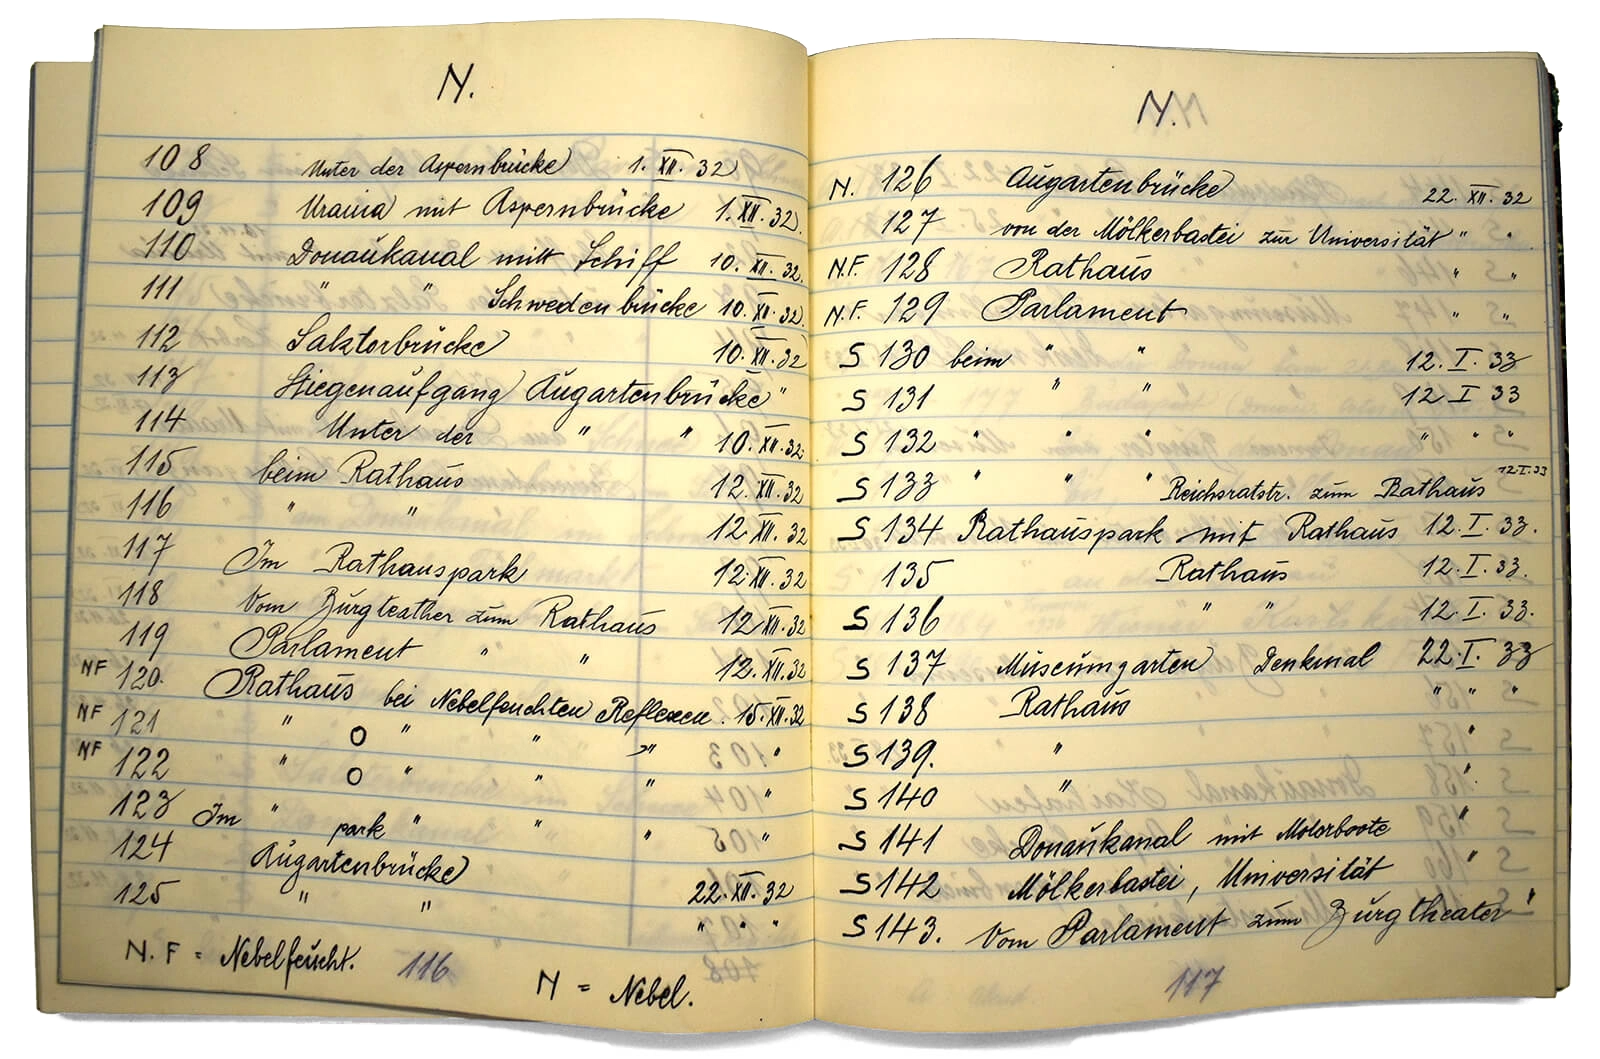 N.
108 Unter der Aspernbrücke 1. XII. 32
109 Urania mit Aspernbrücke 1. XII. 32.
110 Donaukanal mitt Schiff 10. XII. 32.
111 " " Schwedenbrücke 10. XII. 32.
112 Salztorbrücke 10. XII. 32
113 Stiegenaufgang Augartenbrücke "
114 Unter der " " 10. XII. 32.
115 beim Rathaus 12. XII. 32
116 " " 12 XII. 32
117 Im Rathauspark 12. XII. 32
118 Vom Burgteather zum Rathaus 12 XII. 32
119 Parlament " " 12. XII. 32
NF 120. Rathaus bei Nebelfeuchten Reflexen. 15. XII. 32
NF 121 " O " " " "
NF 122 " O " " " "
123 Im " park " " " "
124 Augartenbrücke 22. XII. 32
125 " " " " "
N. F = Nebelfeucht. 116 N = Nebel.
N.
N. 126 Augartenbrücke 22. XII. 32
127 von der Mölkerbastei zur Universität " "
N.F. 128 Rathaus " "
N.F. 129 Parlament " "
S 130 beim " " 12. I. 33
S 131 " " 12 I 33
S 132 " " " " " "
S 133 " " " Reichsratstr. zum Rathaus 12. I. 33
S 134 Rathauspark mit Rathaus 12. I. 33.
135 Rathaus 12. I. 33.
S 136 " " 12. I. 33.
S 137 Museumgarten Denkmal 22. I. 33
S 138 Rathaus " " "
S 139. " "
S 140 " "
S 141 Donaukanal mit Motorboote "
S 142 Mölkerbastei, Universität "
S 143. Vom Parlament zum Burgtheater "
117